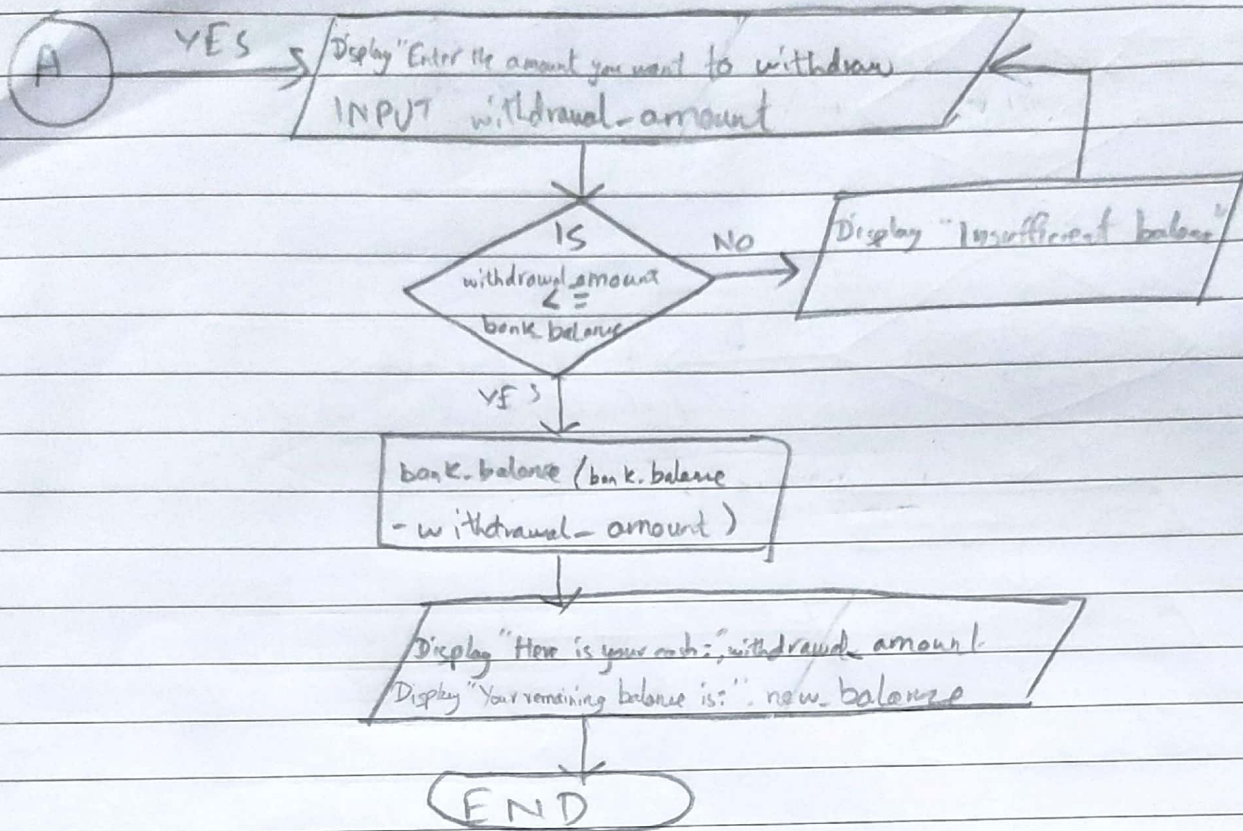 A
YES
Display "Enter the amount you want to withdraw
INPUT withdrawal_amount
IS
withdrawal_amount
<=
bank balance
NO
Display "Insufficient balance"
YES
bank.balance (bank.balance
- withdrawal_amount)
Display "Here is your cash:", withdrawal_amount
Display "Your remaining balance is:". new_balance
END